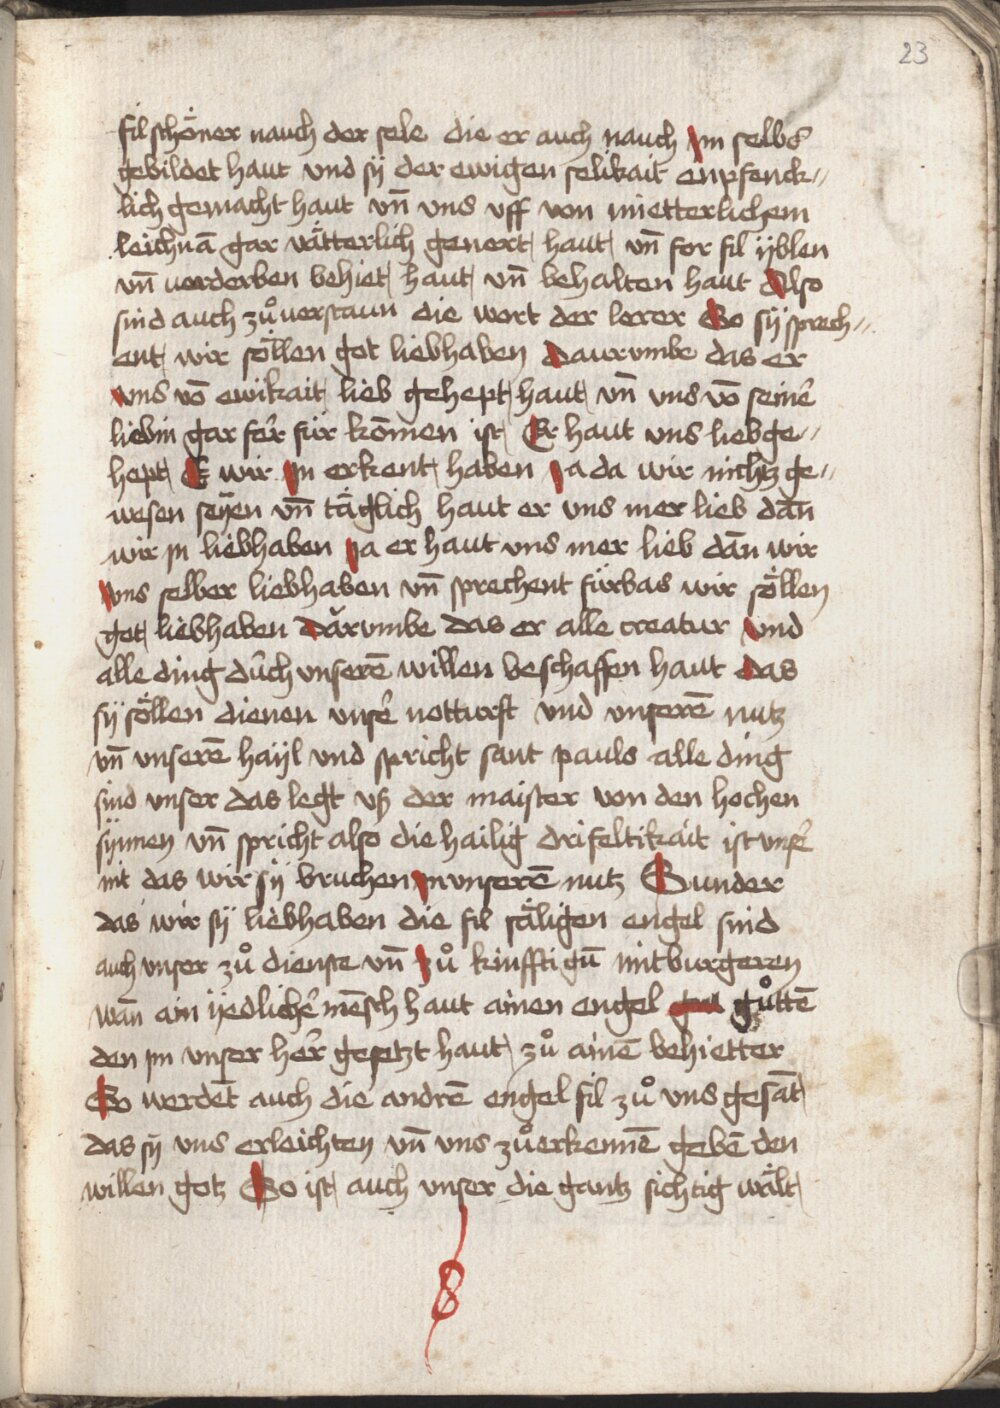 23
fil schöner nauch der sele die er auch nauch im selbs
gebildet haut vnd sÿ der ewigen selikait enpfenck//
lich gemacht haut vn̄ vns vff von mietterlichem
leichnā gar vätterlich genert haut vn̄ for fil ÿblen
vn̄ verderben behiet haut vn̄ behalten haut Also
sind auch zů uerstaun die wort der lerer So sÿ sprech//
ent wir söllen got liebhaben Daurumbe das er
vns vō ewikait lieb gehept haut vn̄ vns vō seinē
liebin gar fer für kōmen ist Er haut vns liebge//
hept E wir in erkent haben ja da wir nichtz ge//
wesen seÿen vn̄ täglich haut er vns mer lieb dān
wir jn liebhaben ja er haut vns mer lieb dān wir
vns selber liebhaben vn̄ sprechent fürbas wir söllen
got liebhaben Darumbe das er alle creatur vnd
alle ding durch vnserē willen beschaffen haut das
sÿ söllen dienen vnser notturft vnd vnserē nutz
vn̄ vnserē haÿl vnd spricht sant pauls alle ding
sind vnser das legt vß der maister von den hochen
sÿnnen vn̄ spricht also die hailig drifeltikait ist vnser
nit das wir sÿ bruchen jn vnserē nutz Sunder
das wir sÿ liebhaben die fil säligen engel sind
auch vnser zů dienste vn̄ zů kinfftigū mitburgeren
wān ain ÿedlicher mēsch haut ainen engel gůttē
den jm vnser her gesetzt haut zů ainē behietter
So werdēt auch die andrē engel fil zů vns gesāt
das sÿ vns erleichten vn̄ vns zů erkennē gebē den
willen gotz So ist auch vnser die gantz sichtig wält